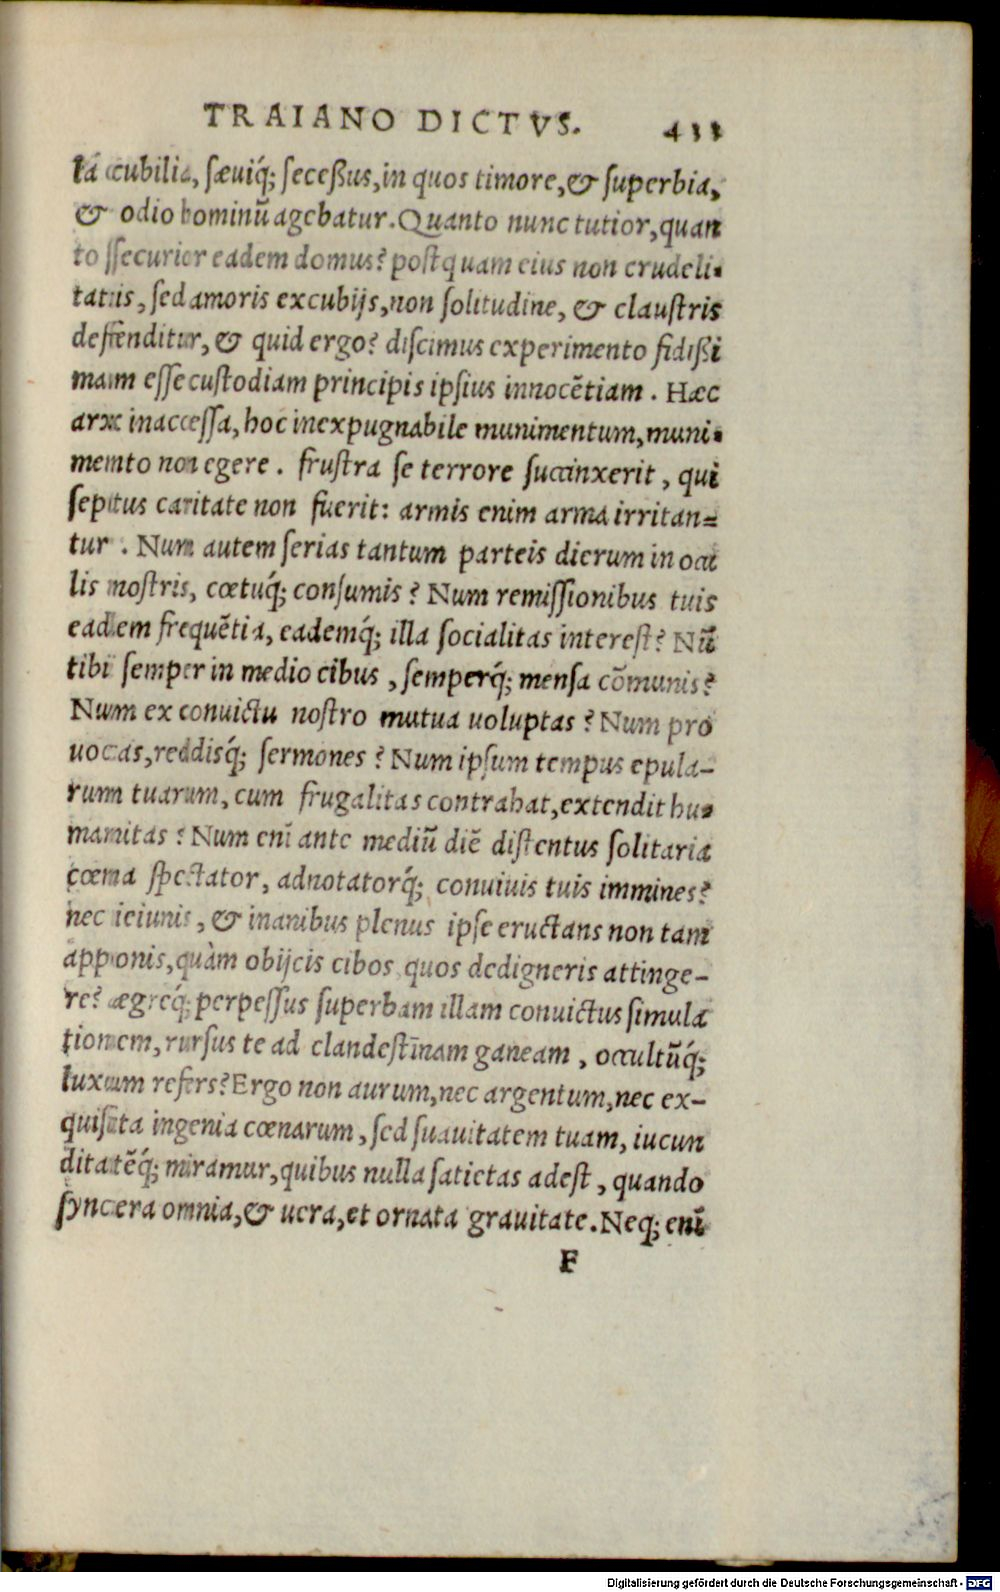 TRAIANO DICTVS. 433
la cubilia, sæuiq́; seceßus, in quos timore, & superbia,
& odio hominũ agebatur. Quanto nunc tutior, quan
to securior eadem domus? postquam eius non crudeli-
tatis, sed amoris excubijs, non solitudine, & claustris
deffenditur, & quid ergo? discimus experimento fidißi
mam esse custodiam principis ipsius innocẽtiam. Hæc
arx inaccessa, hoc inexpugnabile munimentum, muni-
mento non egere. frustra se terrore succinxerit, qui
septus caritate non fuerit: armis enim arma irritan-
tur. Num autem serias tantum parteis dierum in ocu
lis nostris, cœtuq́; consumis? Num remissionibus tuis
eadem frequẽtia, eademq́; illa socialitas interest? Nũ
tibi semper in medio cibus, semperq́; mensa cõmunis?
Num ex conuictu nostro mutua uoluptas? Num pro
uocas, reddisq́; sermones? Num ipsum tempus epula-
rum tuarum, cum frugalitas contrahat, extendit hu-
manitas? Num enĩ ante mediũ diẽ distentus solitaria
cœna spectator, adnotatorq́; conuiuis tuis immines?
nec ieiunis, & inanibus plenus ipse eructans non tam
apponis, quàm obijcis cibos quos dedigneris attinge-
re? ægreq́; perpessus superbam illam conuictus simula
tionem, rursus te ad clandestĩnam ganeam, occultũq́;
luxum refers? Ergo non aurum, nec argentum, nec ex-
quisita ingenia cœnarum, sed suauitatem tuam, iucun
ditatẽq́; miramur, quibus nulla satietas adest, quando
syncera omnia, & uera, et ornata grauitate. Neq; enĩ
F
Digitalisierung gefördert durch die Deutsche Forschungsgemeinschaft - DFG